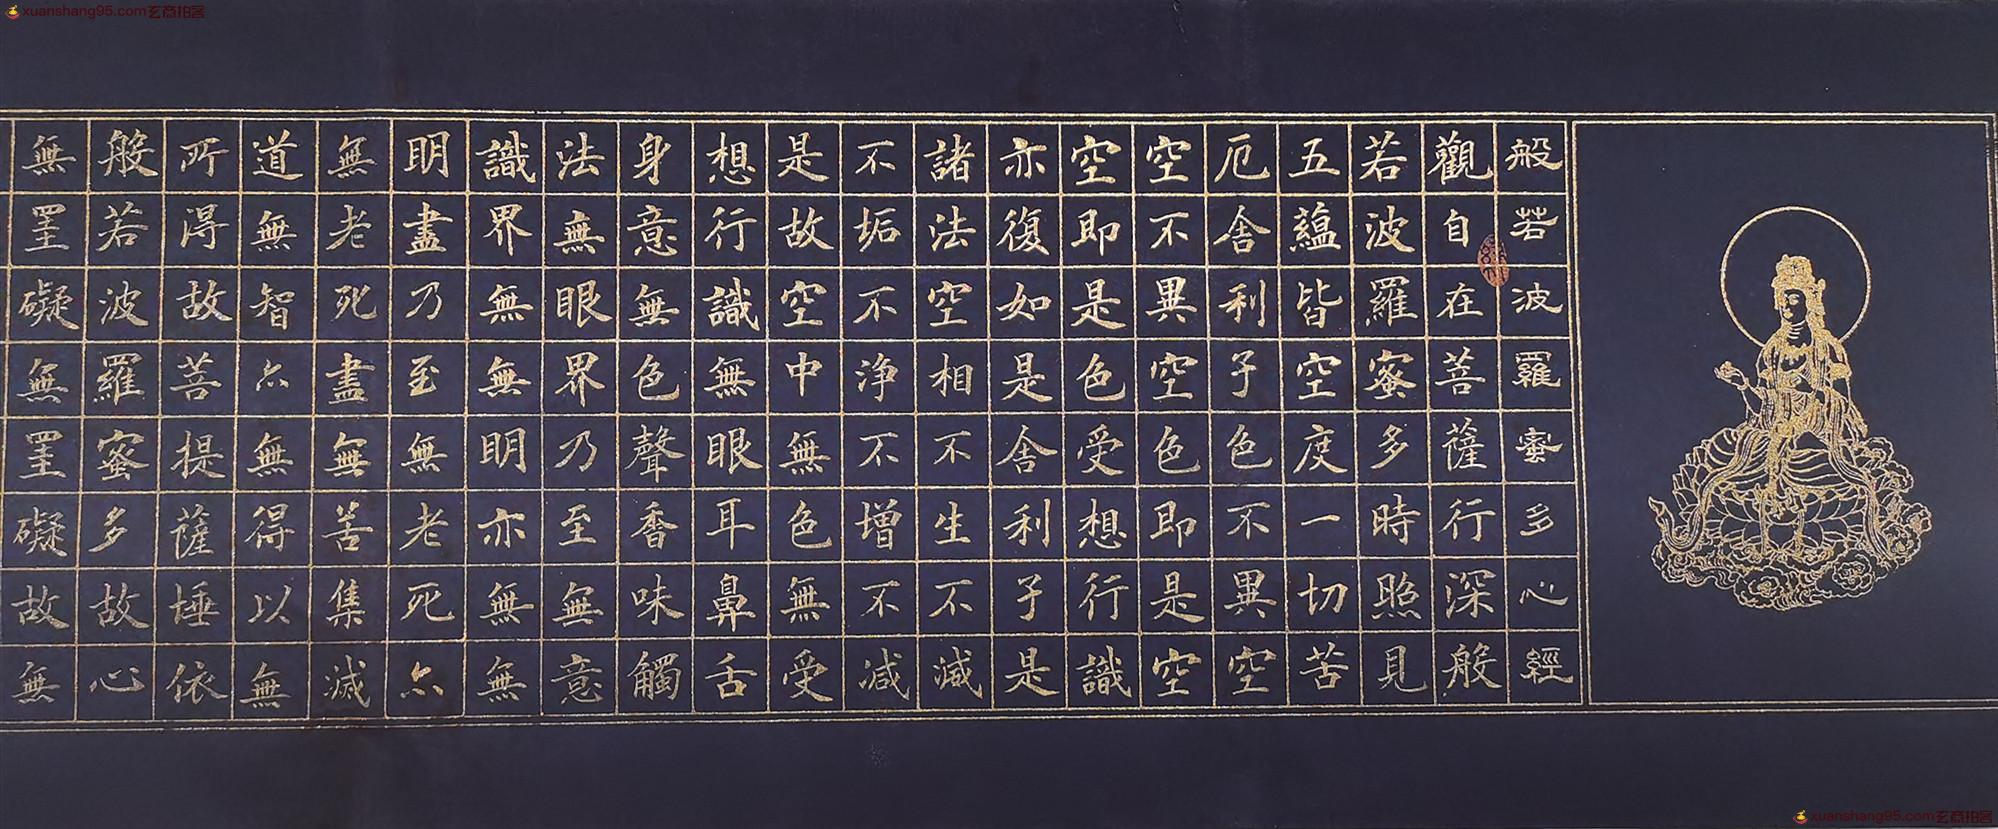 般若波羅蜜多心經
觀自在菩薩行深般
若波羅蜜多時照見
五蘊皆空度一切苦
厄舍利子色不異空
空不異空色即是空
空即是色受想行識
亦復如是舍利子是
諸法空相不生不減
不垢不浄不增不減
是故空中無色無受
想行識無眼耳鼻舌
身意無色聲香味觸
法無眼界乃至無意
識界無無明亦無無
明盡乃至無老死亦
無老死盡無苦集滅
道無智亦無得以無
所得故菩提薩埵依
般若波羅蜜多故心
無罣礙無罣礙故無
xuanshang95.com玄商拍客
xuanshang95.com玄商拍客